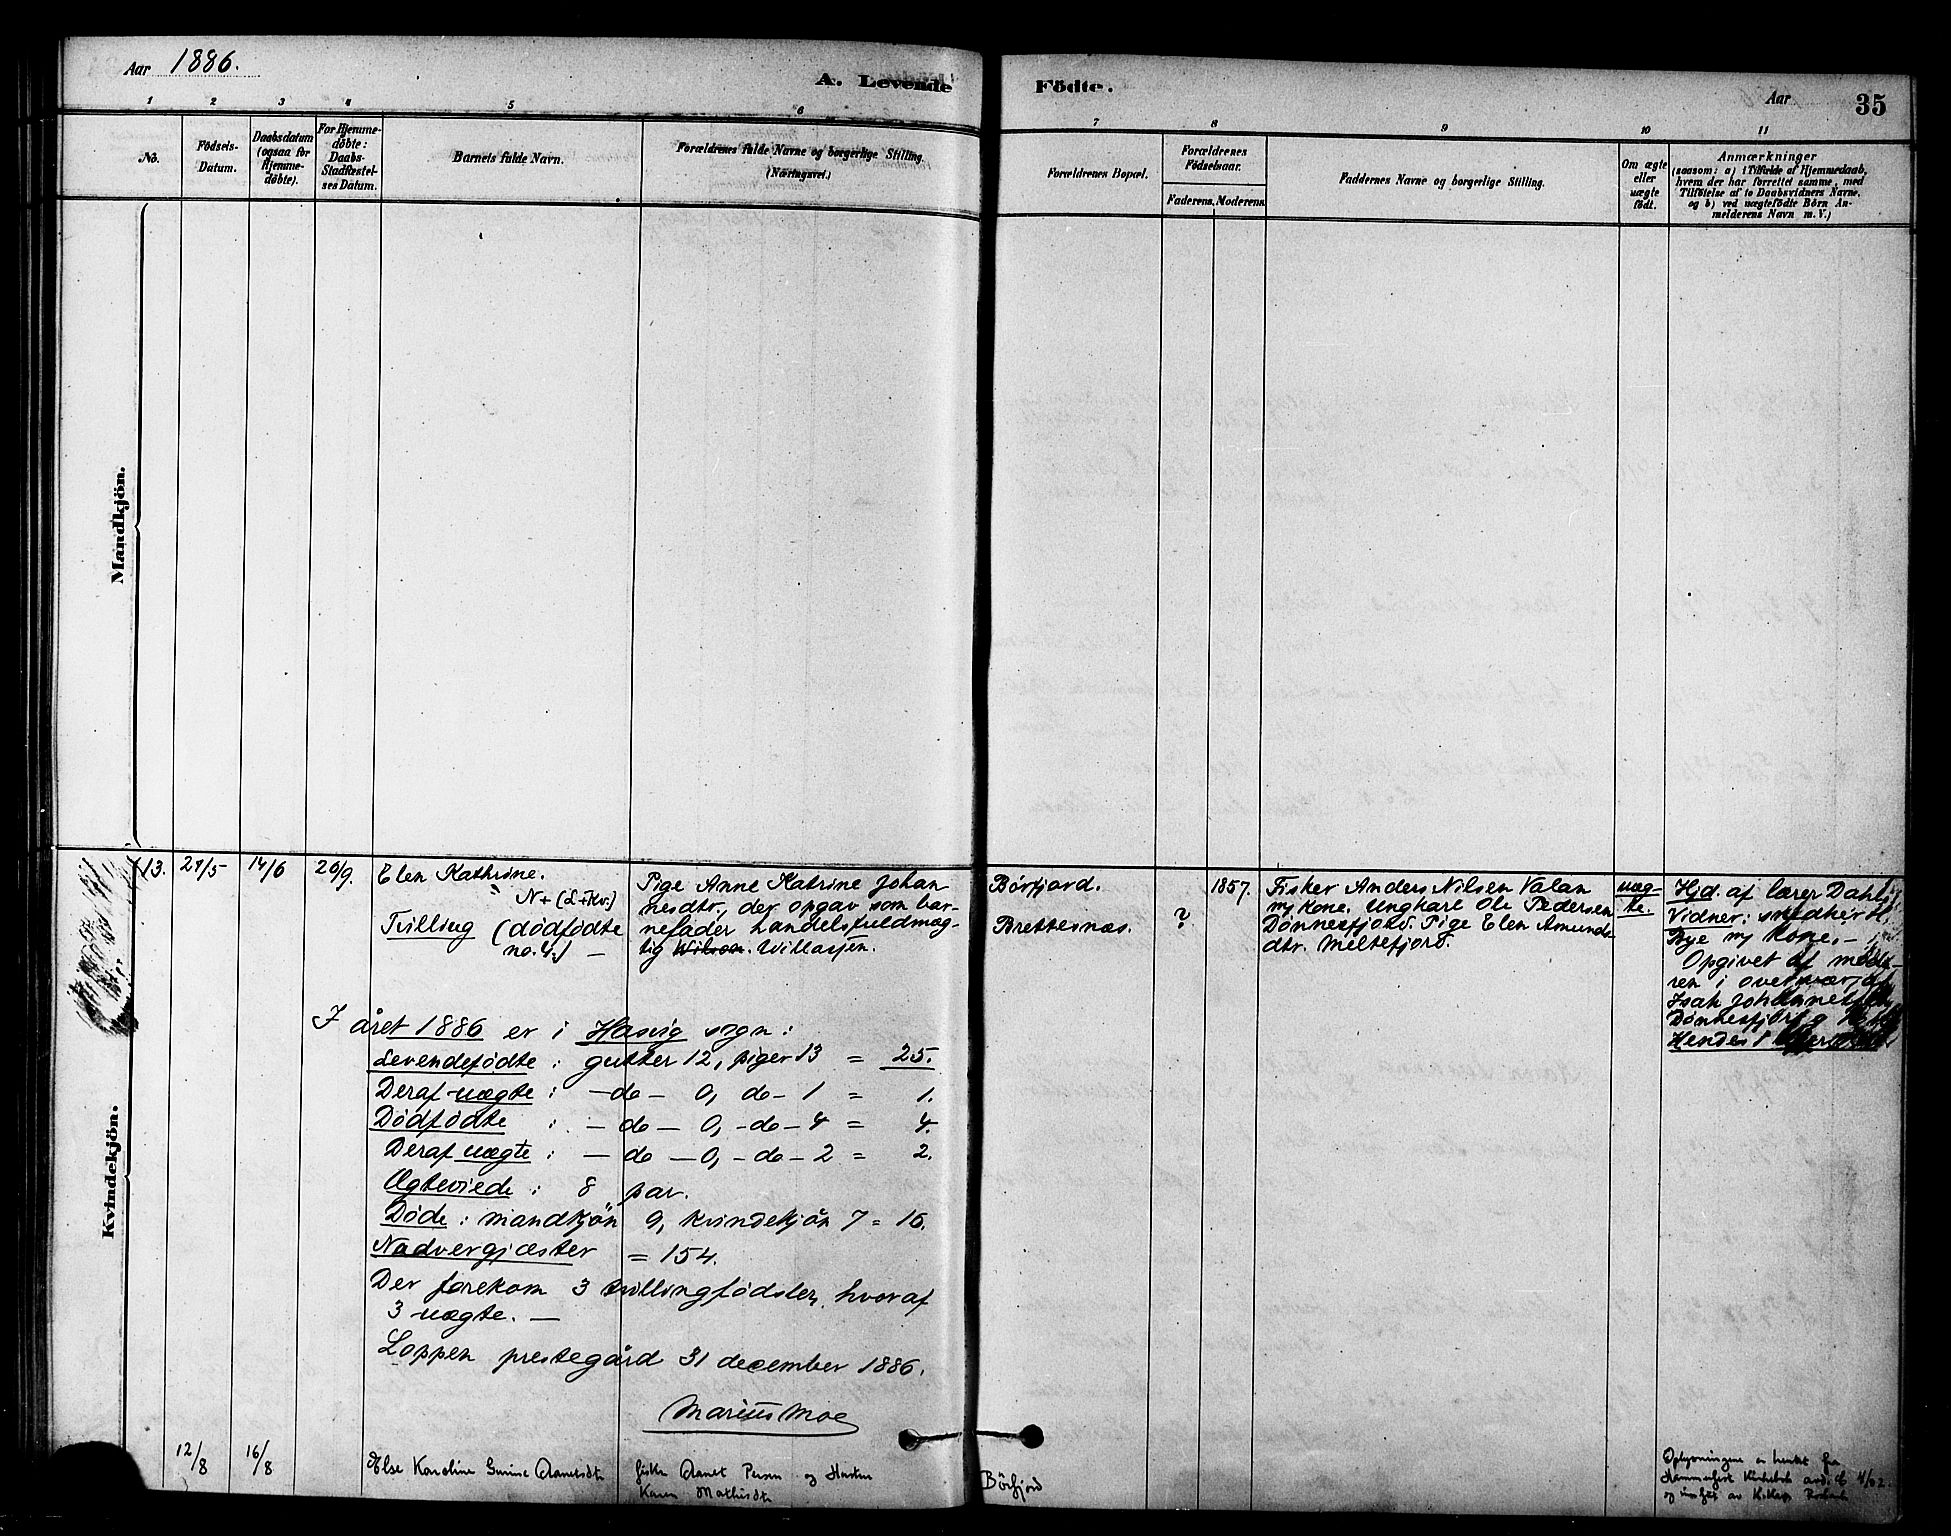 Aar 1886.
A. Levende Födte.
Aar
35
1 2 3 4 5 6 7 8 9 10 11
No.
Födsels-
Datum.
Daabsdatum
(ogsaa for
Hjemme-
döbte).
For Hjemme-
döbte:
Daabs-
Stadfæstel-
ses Datum.
Barnets fulde Navn.
Forældrenes fulde Navne og borgerlige Stilling.
(Næringsvei.)
Forældrenes Bopæl.
Forældrenes
Födselsaar.
Faderens. Moderens.
Faddernes Navne og borgerlige Stilling.
Om ægte
eller
uægte
födt.
Anmærkninger
(saasom: a) i Tilfælde af Hjemmedaab,
hvem der har forrettet samme, med
Tilföielse af to Daabsvidners Navne,
og b) ved uægtefödte Börn An-
melderens Navn m. V.)
Mandkjön.
Kvindekjön.
13.
14/6
20/9.
Elen Kathrine.
N + (L+Kv.)
Tvilling (dødfødte
no. 4.) —
Pige Anne Katrine Johan
nesdtr, der opgav som bar-
nefader handelsfuldmæg-
tig Willassen.
Børfjord.
Brettesnæs.
?
1857.
Fisker Anders Nilsen Valan
m/ kone. Ungkarl Ole Pedersen
Dønnesfjord. Pige Elen Amunds
dtr. Meltefjord.
uæg-
te.
Hjd. af lærer Dahl
Vidner: H.
Bye m/ kone. —
Opgivet af mode-
ren i overvær af
Isak Johannes
Dønnesfjord
Hendes
I året 1886 er i Hasvig sogn:
Levendefødte: gutter 12, piger 13 = 25.
Deraf uægte: — do — 0, do — 1 = 1.
Dødfødte : — do — 0, — do — 4 = 4.
Deraf uægte: — do — 0, — do — 2 = 2.
Ægteviede: 8 par.
Døde: mandkjön 9, kvindekjön 7 = 16.
Nadvergjæster = 154.
Der forekom 3 tvillingfødsler, hvoraf
3 uægte. —
Loppen prestegård 31 december 1886.
Marius Moe
12/8
16/8
Else Karoline
og Hustru
Karen
Børfjord
Oplysningene er hentet fra
Hammerfest